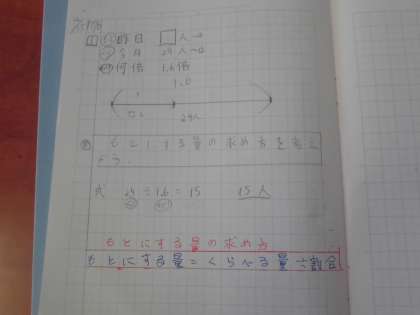 1 昨日 □人
今日 24人
何倍 1.6倍
24人
もとにする量の求め方を考え
よう。
式 24÷1.6=15 15人
もとにする量の求め方
もとにする量=くらべる量÷割合